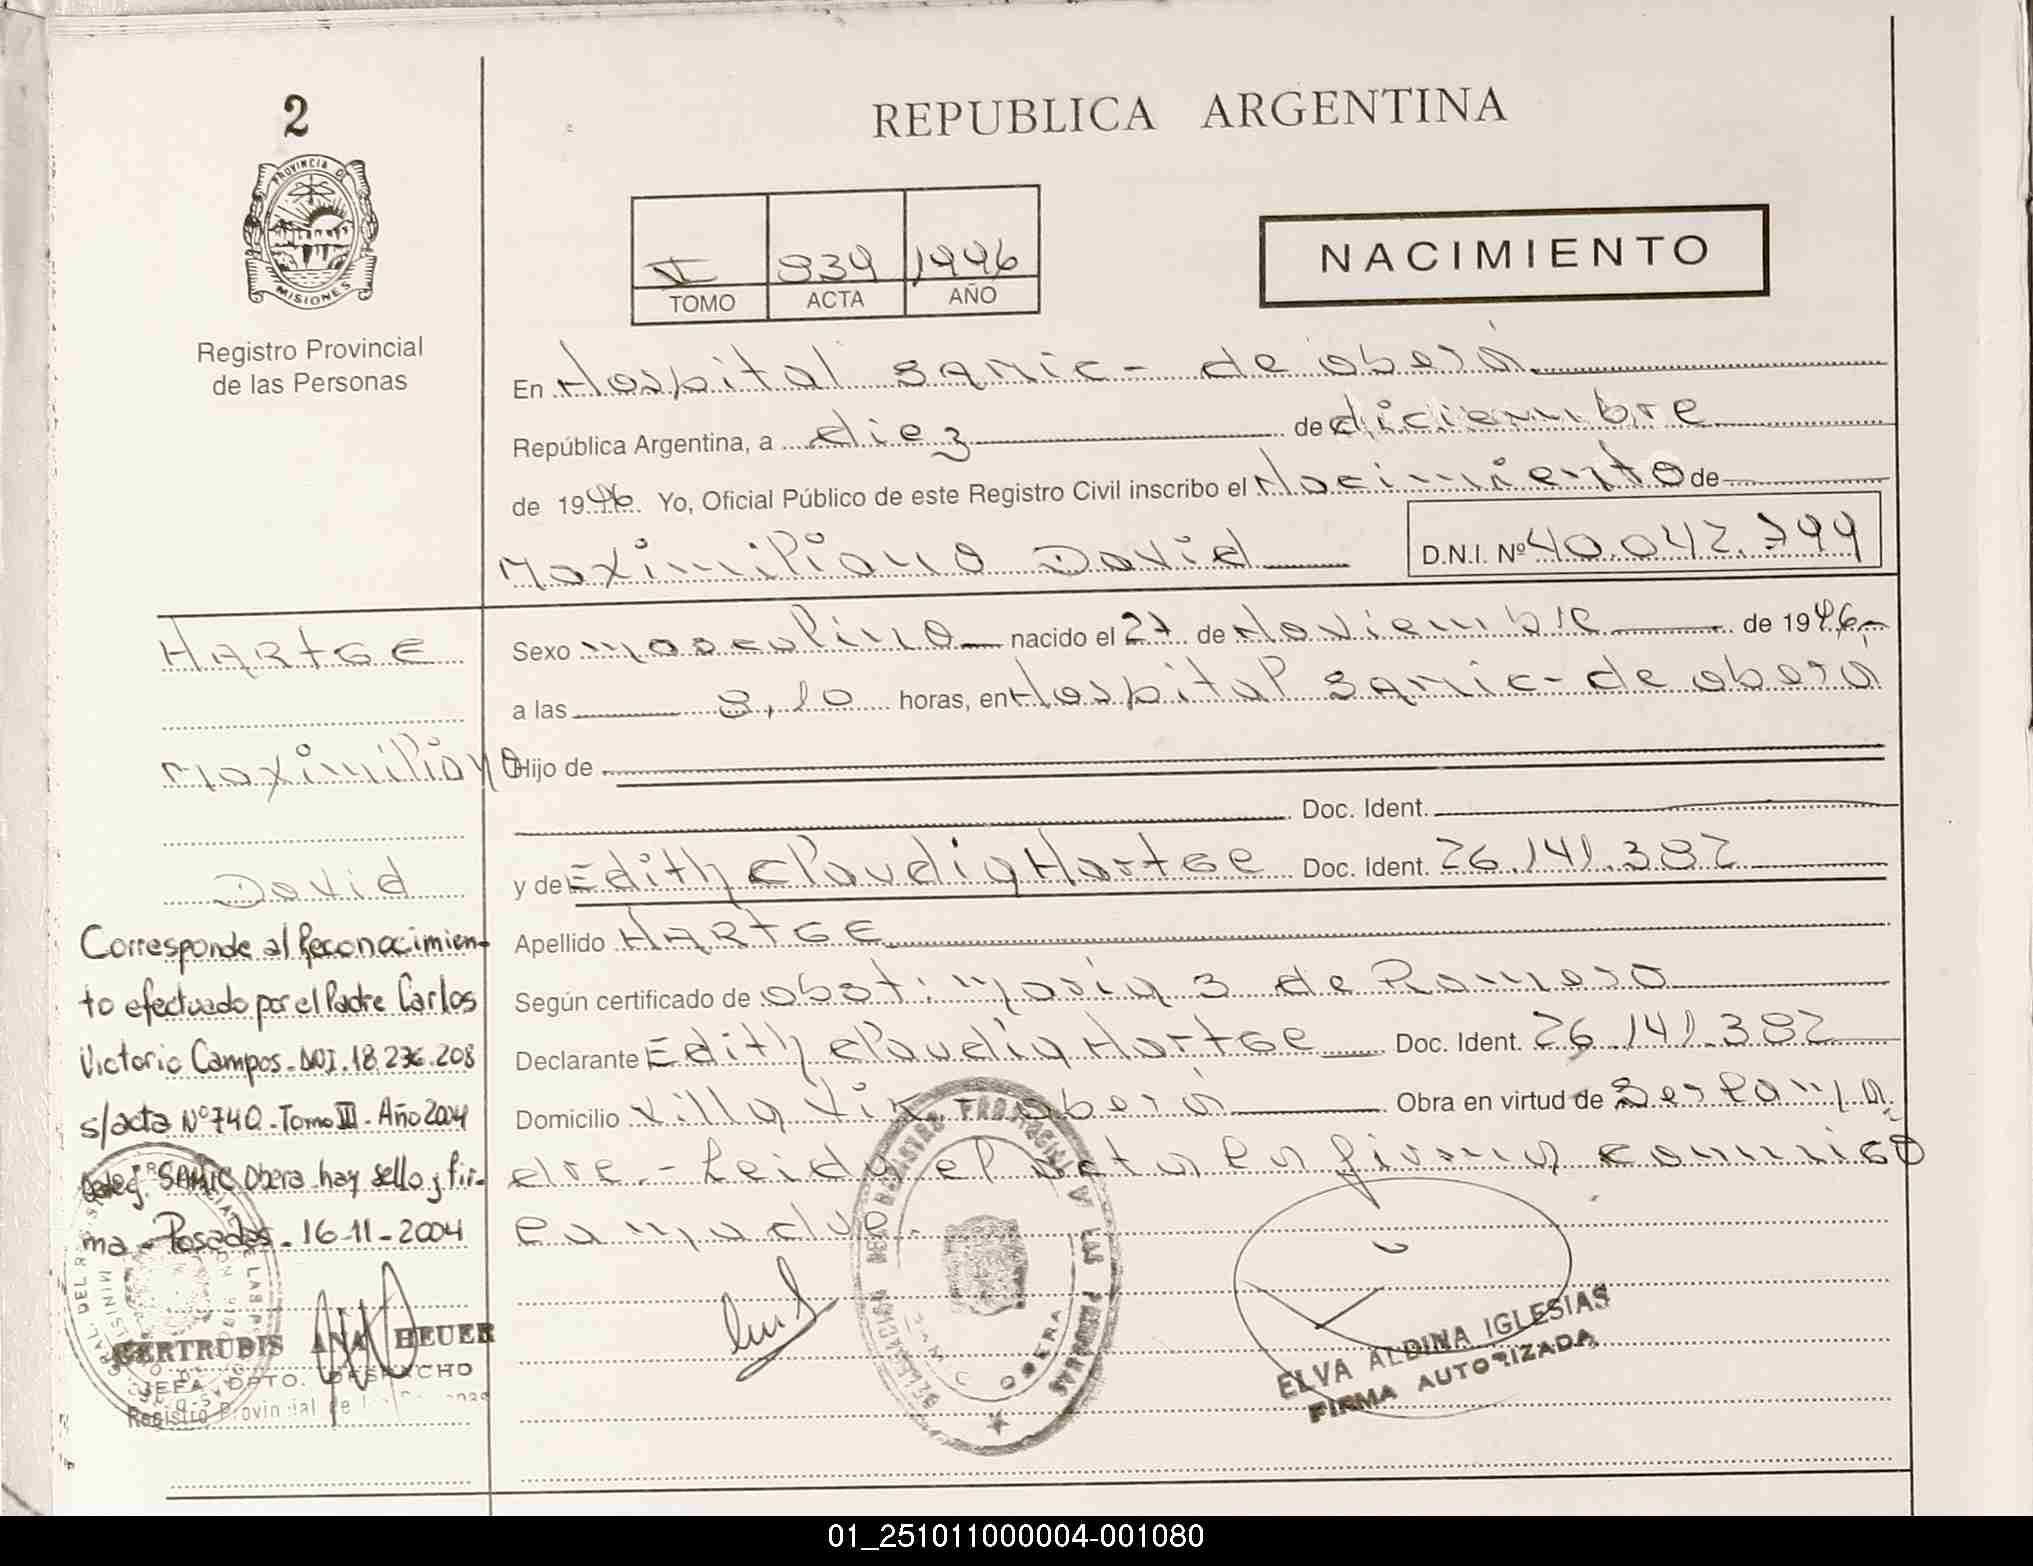 2
REPUBLICA ARGENTINA
PROVINCIA DE
MISIONES
Registro Provincial
de las Personas
I 939 1996
TOMO ACTA AÑO
NACIMIENTO
En Hospital samic - de oberá
República Argentina, a diez de diciembre
de 1996. Yo, Oficial Público de este Registro Civil inscribo el Nacimiento de
Maximiliano David D.N.I. Nº 40.042.799
HARTGE
Maximiliano
David
Sexo masculino nacido el 27 de Noviembre de 1996.-
a las 9,10 horas, en Hospital samic - de oberá
Hijo de
Doc. Ident.
y de Edith Claudia Hartge Doc. Ident. 26.141.382
Apellido HARTGE
Según certificado de obst. maria de Romero
Declarante Edith Claudia Hartge Doc. Ident. 26.141.382
Domicilio Villa oberá Obra en virtud de Ser la ma
dre.- Leida el acta la firma conmigo
la madre.
Corresponde al Reconocimien-
to efectuado por el Padre Carlos
Victorio Campos - DNI. 18.236.208
s/acta Nº 740 - Tomo III - Año 2004
Deleg. SAMIC Obera hay sello y fir-
ma - Posadas - 16-11-2004
GERTRUDIS ANA HEUER
JEFA DPTO. DESPACHO
Registro Provincial de
DELEGACION DEL REGISTRO PROVINCIAL DE LAS PERSONAS
OBERA
ELVA ALDINA IGLESIAS
FIRMA AUTORIZADA
01_251011000004-001080